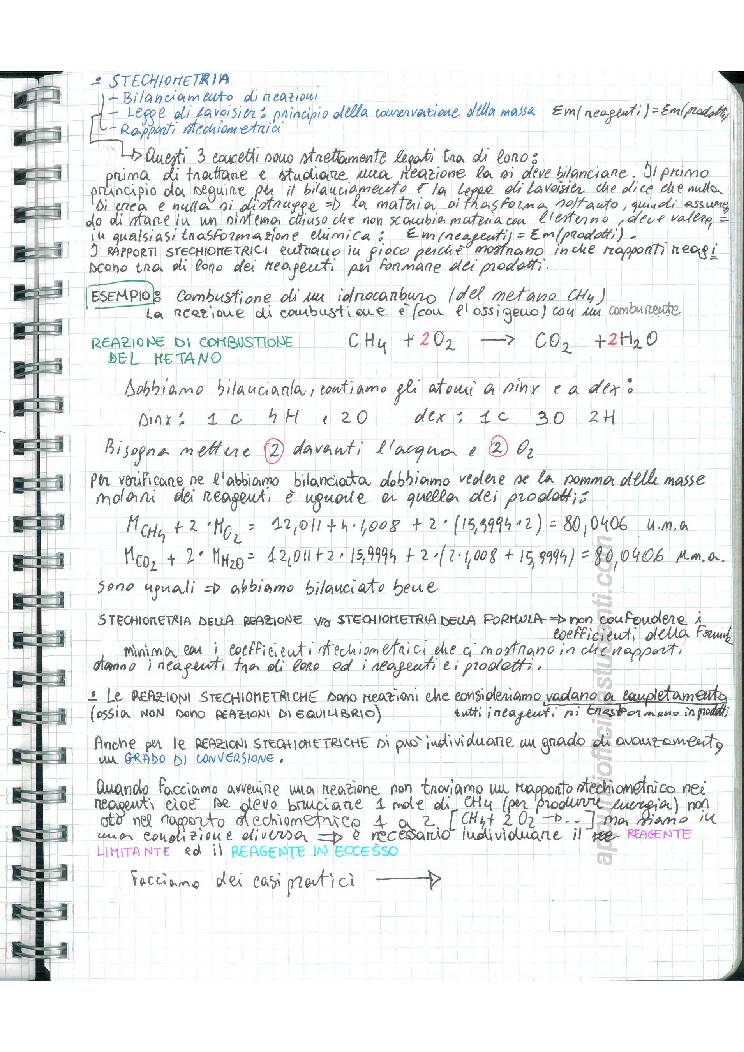 - STECHIOMETRIA
- Bilanciamento di reazioni
- Legge di Lavoisier: principio della conservazione della massa Σm(reagenti) = Σm(prodotti)
- Rapporti stechiometrici
↳ Questi 3 concetti sono strettamente legati tra di loro:
prima di trattare e studiare una reazione la si deve bilanciare. Il primo
principio da seguire per il bilanciamento è la legge di Lavoisier che dice che nulla
si crea e nulla si distrugge ⇒ la materia si trasforma soltanto, quindi assumen
do di stare in un sistema chiuso che non scambia materia con l'esterno, deve valere
in qualsiasi trasformazione chimica: Σm(reagenti) = Σm(prodotti).
I RAPPORTI STECHIOMETRICI entrano in gioco perché mostrano in che rapporti reagi
scono tra di loro dei reagenti per formare dei prodotti.
ESEMPIO: Combustione di un idrocarburo (del metano CH4)
La reazione di combustione è (con l'ossigeno) con un comburente
REAZIONE DI COMBUSTIONE
DEL METANO
CH4 + 2O2 → CO2 + 2H2O
Dobbiamo bilanciarla, contiamo gli atomi a sinx e a dex:
sinx: 1 C 4 H e 2 O dex: 1 C 3O 2H
Bisogna mettere 2 davanti l'acqua e 2 O2
Per verificare se l'abbiamo bilanciata dobbiamo vedere se la somma delle masse
molari dei reagenti è uguale a quella dei prodotti:
MCH4 + 2·MO2 = 12,011 + 4·1,008 + 2·(15,9994·2) = 80,0406 u.m.a
MCO2 + 2·MH2O = 12,011 + 2·15,9994 + 2·(2·1,008 + 15,9994) = 80,0406 u.m.a.
sono uguali ⇒ abbiamo bilanciato bene
STECHIOMETRIA DELLA REAZIONE v/s STECHIOMETRIA DELLA FORMULA ⇒ non confondere i
coefficienti della formula
minima con i coefficienti stechiometrici che ci mostrano in che rapporti
stanno i reagenti tra di loro ed i reagenti e i prodotti.
: Le REAZIONI STECHIOMETRICHE sono reazioni che consideriamo vadano a completamento
(ossia NON SONO REAZIONI DI EQUILIBRIO) tutti i reagenti si trasformano in prodotti
Anche per le REAZIONI STECHIOMETRICHE si può individuare un grado di avanzamento,
un GRADO DI CONVERSIONE.
Quando facciamo avvenire una reazione non troviamo un rapporto stechiometrico nei
reagenti cioè se devo bruciare 1 mole di CH4 (per produrre energia) non
sto nel rapporto stechiometrico 1 a 2, [CH4 + 2O2 → ...] ma siamo in
una condizione diversa ⇒ è necessario individuare il REAGENTE
LIMITANTE ed il REAGENTE IN ECCESSO
Facciamo dei casi pratici →